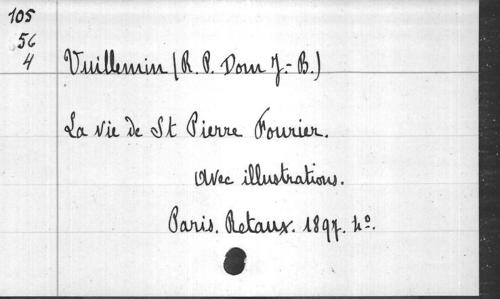 105
56
4
Vuillemin (R. P. Dom J.-B.)
La vie de St Pierre Fourier.
Avec illustrations.
Paris. Retaux. 1897. 4º.